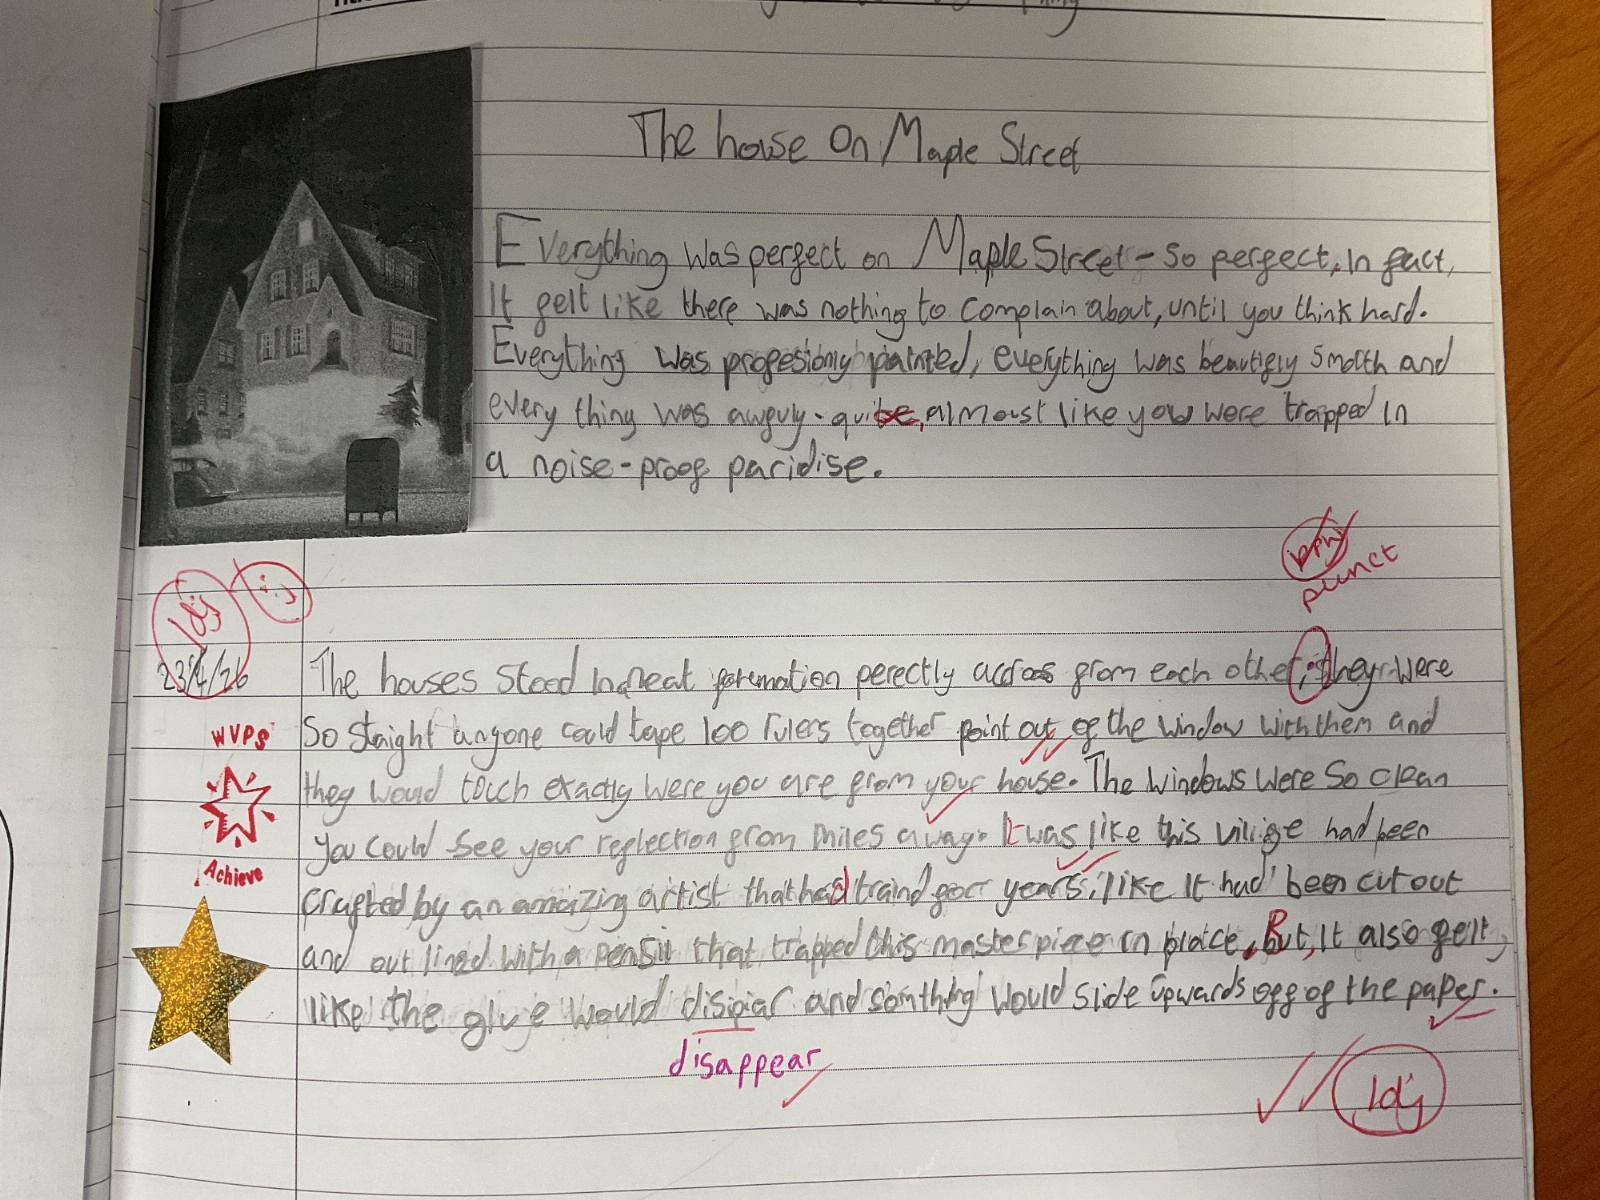 The house On Maple Street
Everything was perfect on Maple Street - so perfect, In fact,
It felt like there was nothing to complain about, until you think hard.
Everything was profesionly painted, everything was beautifly smoth and
every thing was awfuly - quite, almoust like you were trapped in
a noise-proof paridise.
punct
ldj
23/4/26
The houses stood In neat formation perectly across from each other; they were
So staight anyone could tape 100 rulers together point out of the window with them and
they would touch exactly were you are from your house. The windows were So clean
you could see your reflection from miles away. It was like this villige had been
crafted by an amaizing artist that had traind for years; like It had been cut out
and out lined with a pensil that trapped this master piece in place. But, It also felt
like the glue would dispiar and somthing would slide upwards off of the paper.
WVPS
Achieve
disappear
ldj